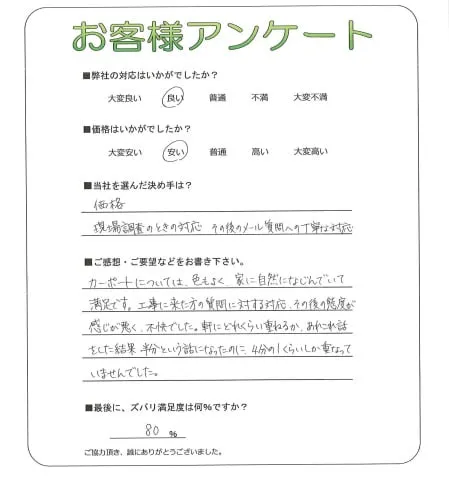 お客様アンケート
■弊社の対応はいかがでしたか？
大変良い 良い 普通 不満 大変不満
■価格はいかがでしたか？
大変安い 安い 普通 高い 大変高い
■当社を選んだ決め手は？
価格
現場調査のときの対応 その後のメール質問への丁寧な対応
■ご感想・ご要望などをお書き下さい。
カーポートについては、色もよく、家に自然になじんでいて
満足です。工事に来た方の質問に対する対応、その後の態度が
感じが悪く、不快でした。軒にどれくらい重ねるか、あれこれ話
をした結果、半分という話になったのに、4分の1くらいしか重なって
いませんでした。
■最後に、ズバリ満足度は何%ですか？
80 %
ご協力頂き、誠にありがとうございました。